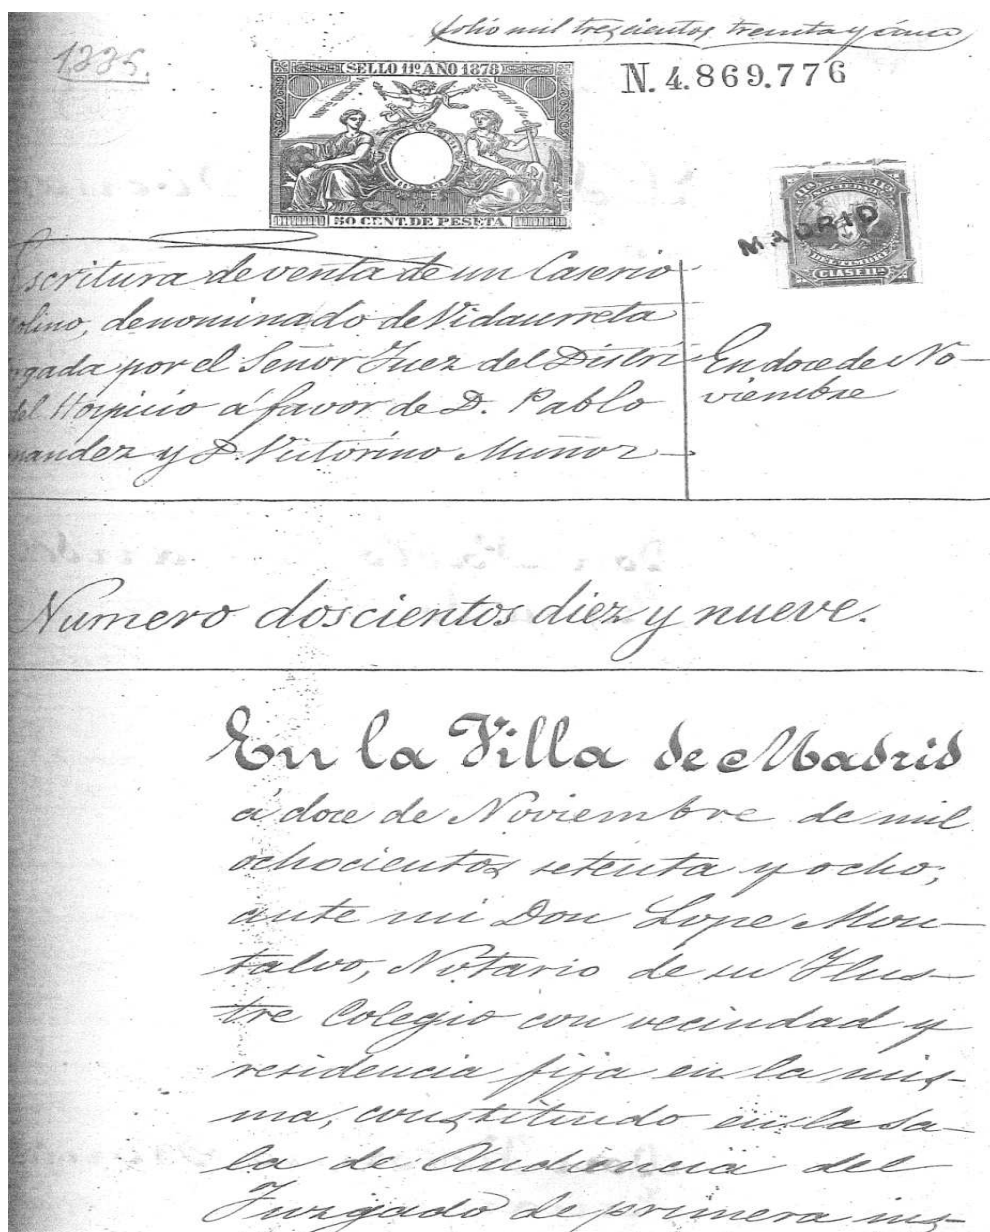 folio mil trescientos treinta y cinco
1335.
SELLO 11º AÑO 1878
N. 4.869.776
50 CENT. DE PESETA
SOCIEDAD
MADRID
CLASE 11ª
scritura de venta de un Caserio
olino, denominado de Vidaurreta
rgada por el Señor Juez del Distri
del Hospicio á favor de D. Pablo
nandez y D. Victorino Muñoz
En doce de No-
viembre
Numero doscientos diez y nueve.
En la Villa de Madrid
á doce de Noviembre de mil
ochocientos setenta y ocho;
ante mi Don Lope Mon-
talvo, Notario de su Ilus-
tre Colegio con vecindad y
residencia fija en la mis-
ma, constituido en la Sa-
la de Audiencia del
Juzgado de primera ins-